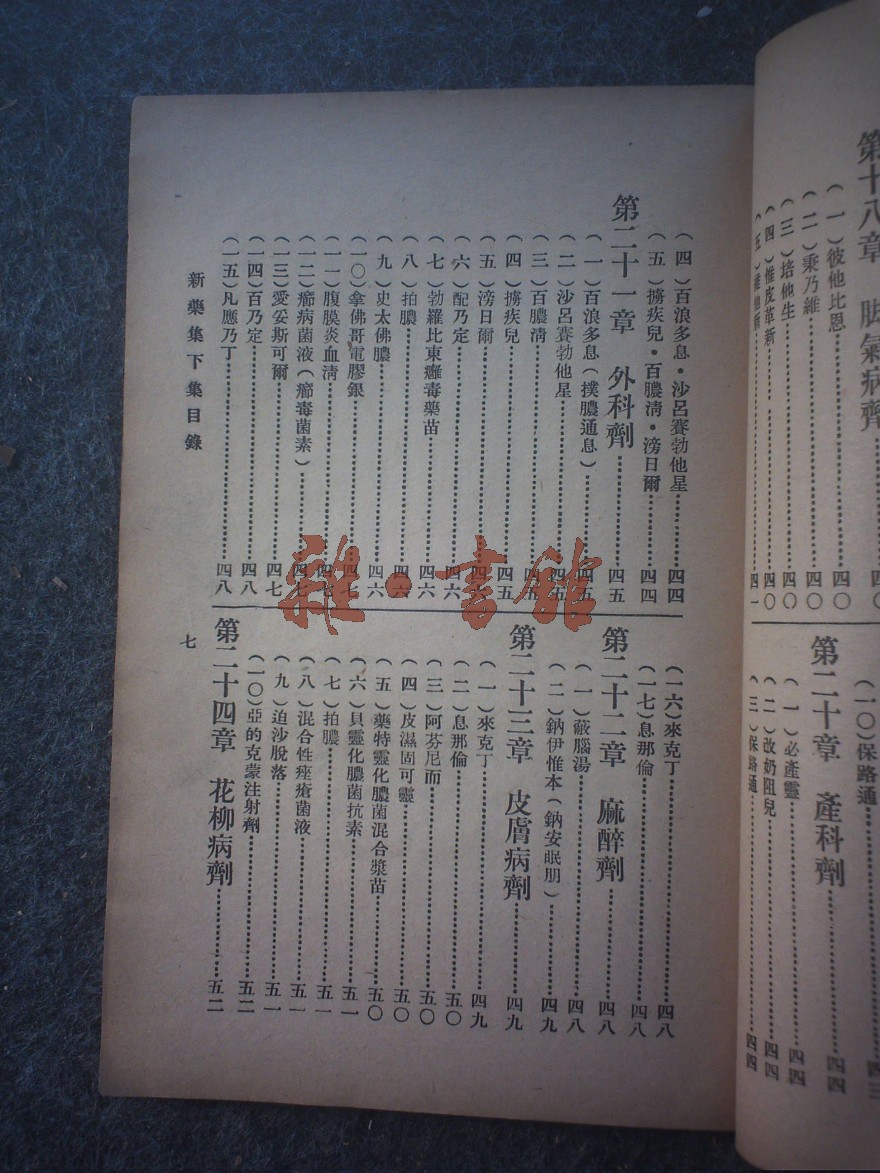 第十八章　脚氣病劑
(一)彼他比恩………四〇
(二)秉乃維………四〇
(三)培他生………四〇
(四)惟皮革新………四〇
(一〇)保路通………四三
第二十章　產科劑………四四
(一)必產靈………四四
(二)改奶阻兒………四四
(三)保路通………四四
(四)百浪多息・沙呂賽勃他星………四四
(五)擄疾兒・百膿淸・滂日爾………四四
第二十一章　外科劑………四五
(一)百浪多息(撲膿通息)………四五
(二)沙呂賽勃他星………四五
(三)百膿淸………四五
(四)擄疾兒………四五
(五)滂日爾………四六
(六)配乃定………四六
(七)勃羅比東癰毒藥苗………四六
(八)拍膿………四六
(九)史太佛膿………四六
(一〇)拿佛哥電膠銀………四七
(一一)腹膜炎血淸………四七
(一二)癤病菌液(癤毒菌素)………四七
(一三)愛妥斯可爾………四七
(一四)百乃定………四八
(一五)凡應乃丁………四八
(一六)來克丁………四八
(一七)息那倫………四八
第二十二章　麻醉劑………四八
(一)蔽腦湯………四八
(二)鈉伊惟本(鈉安眠朋)………四九
第二十三章　皮膚病劑………四九
(一)來克丁………四九
(二)息那倫………五〇
(三)阿芬尼而………五〇
(四)皮濕固可靈………五〇
(五)藥特靈化膿菌混合漿苗………五〇
(六)貝靈化膿菌抗素………五一
(七)拍膿………五一
(八)混合性痤瘡菌液………五一
(九)迫沙脫落………五一
(一〇)亞的克蒙注射劑………五二
第二十四章　花柳病劑………五二
新藥集下集目錄
七
雜・書館